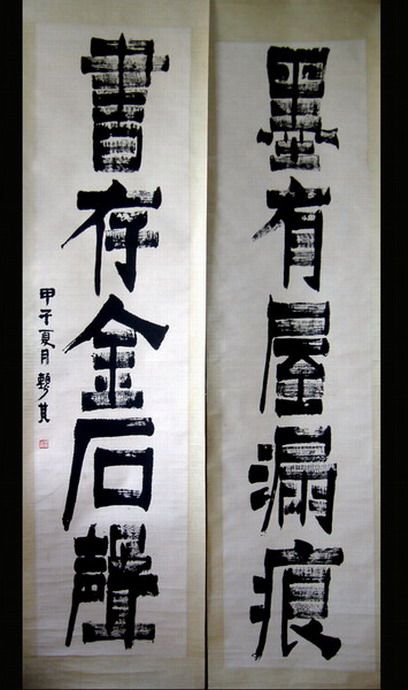 墨有屋漏痕
書存金石聲
甲子夏月